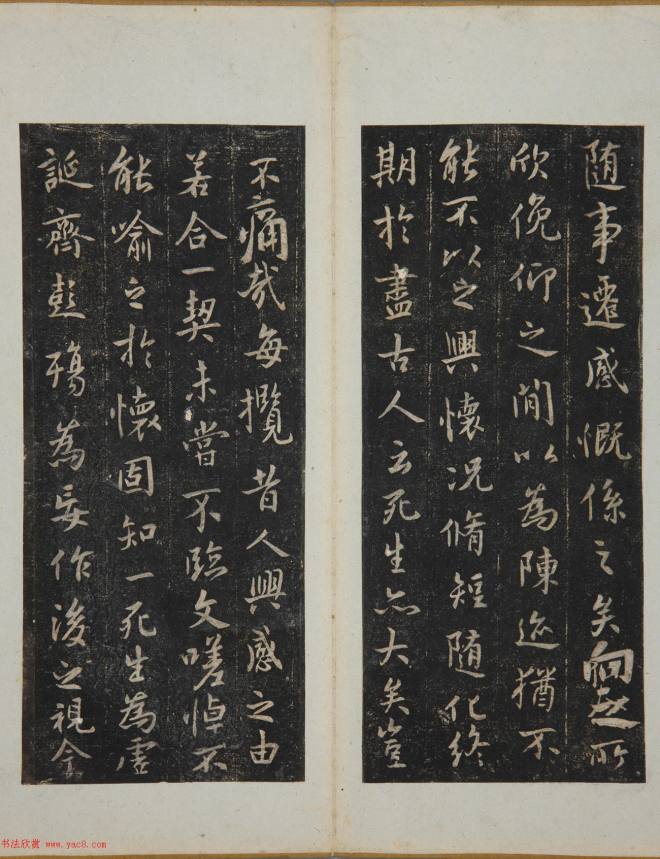 随事遷感慨係之矣向之所
欣俛仰之閒以為陳迹猶不
能不以之興懷况脩短随化終
期於盡古人云死生亦大矣豈
不痛哉每攬昔人興感之由
若合一契未嘗不臨文嗟悼不
能喻之於懷固知一死生為虛
誕齊彭殤為妄作後之視今
书法欣赏 www.yac8.com